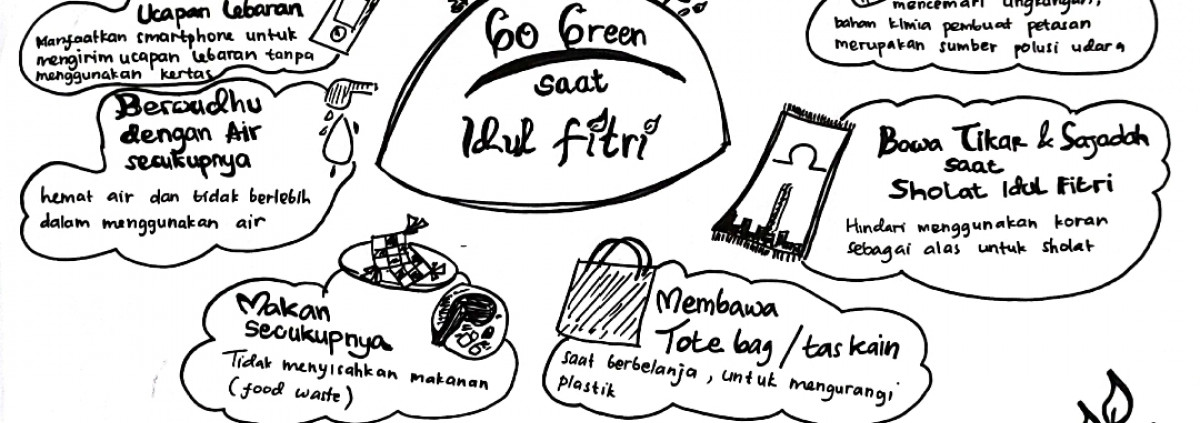 Ucapan Lebaran
Manfaatkan smartphone untuk
mengirim ucapan lebaran tanpa
menggunakan kertas
Berwudhu
dengan Air
secukupnya
hemat air dan tidak berlebih
dalam menggunakan air
Go Green
saat
Idul Fitri
mencemari lingkungan,
bahan kimia pembuat petasan
merupakan sumber polusi udara
Bawa Tikar & Sajadah
saat
Sholat Idul Fitri
Hindari menggunakan koran
sebagai alas untuk sholat
Makan
secukupnya
Tidak menyisahkan makanan
(food waste)
Membawa
Tote bag / tas kain
saat berbelanja, untuk mengurangi
plastik